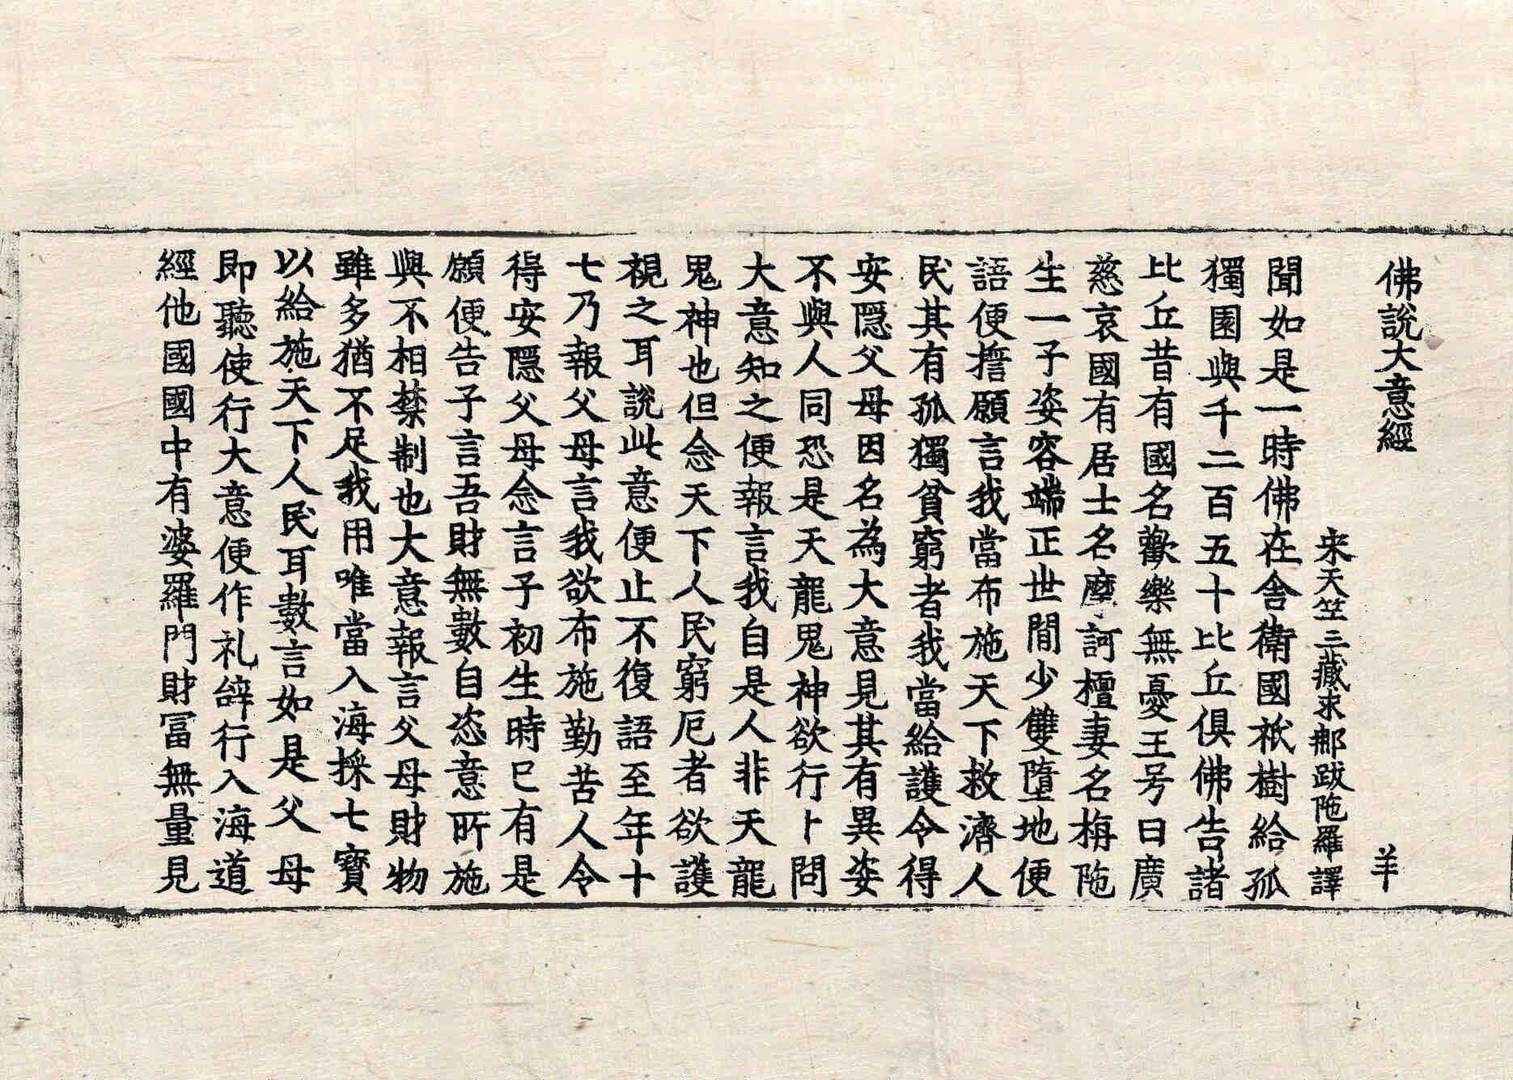 佛說大意經
羊
宋天竺三藏求那跋陁羅譯
聞如是一時佛在舎衛國祇樹給孤
獨園與千二百五十比丘俱佛告諸
比丘昔有國名歡樂無憂王号曰廣
慈哀國有居士名摩訶檀妻名栴陁
生一子姿容端正世間少雙墮地便
語便擔願言我當布施天下救濟人
民其有孤獨貧窮者我當給護令得
安隱父母因名為大意見其有異姿
不與人同恐是天龍鬼神欲行卜問
大意知之便報言我自是人非天龍
鬼神也但念天下人民窮厄者欲護
視之耳說此意便止不復語至年十
七乃報父母言我欲布施勤苦人令
得安隱父母念言子初生時已有是
願便告子言吾財無數自恣意所施
與不相禁制也大意報言父母財物
雖多猶不足我用唯當入海採七寶
以給施天下人民耳數言如是父母
即聽使行大意便作礼辝行入海道
經他國國中有婆羅門財冨無量見